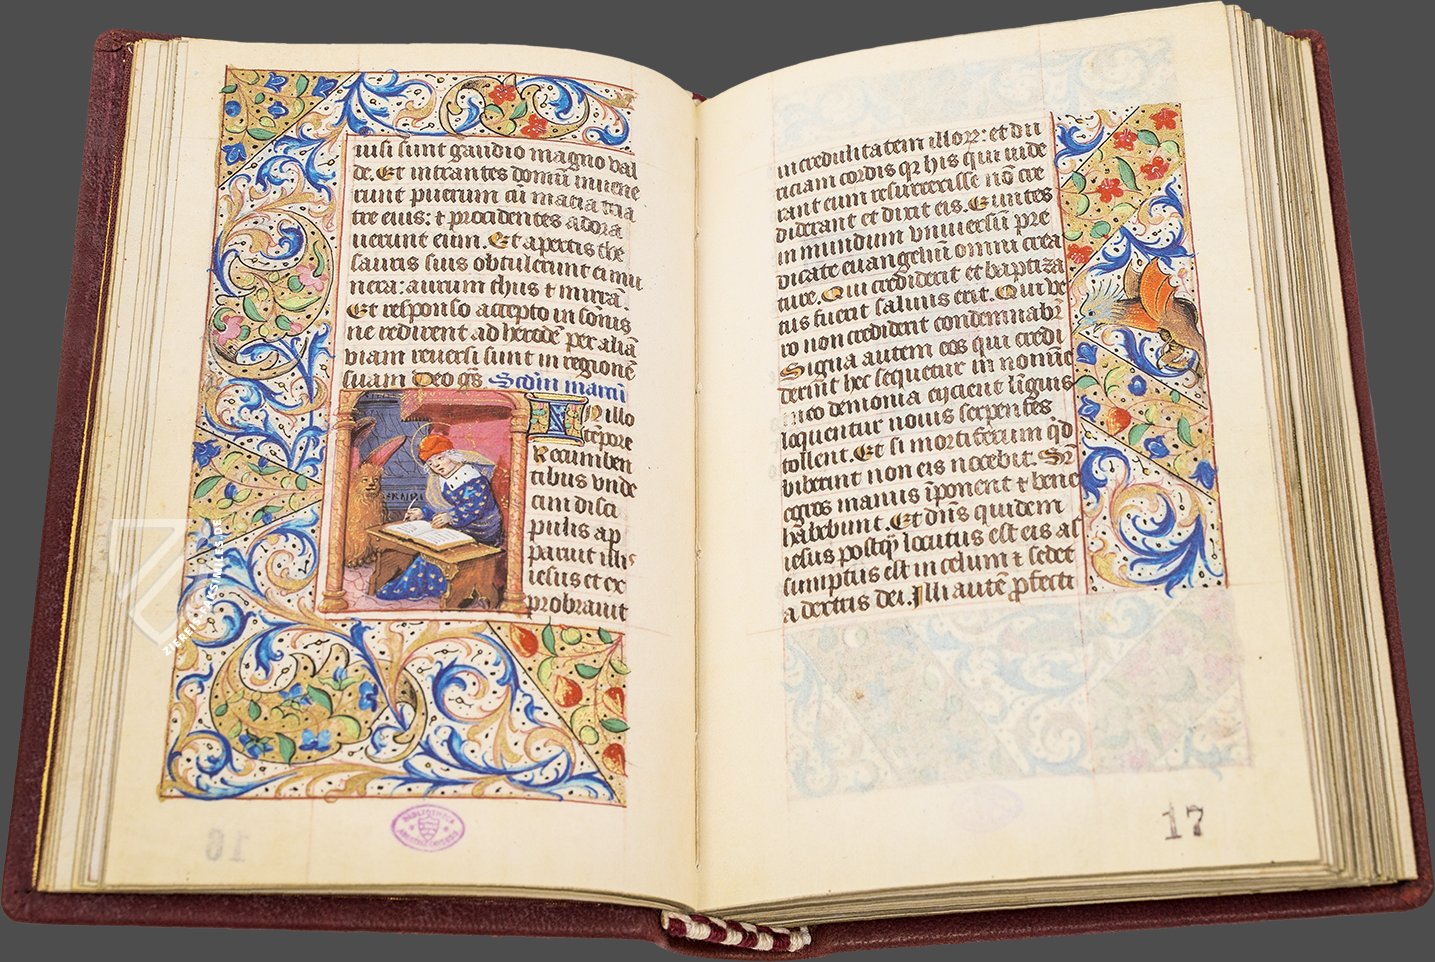 uisi sunt gaudio magno val
de. Et intrantes domū inuene
runt puerum cū maria ma
tre eius: ⁊ procidentes adora
uerunt eum. Et apertis the
sauris suis obtulerunt ei mu
nera: aurum thus ⁊ mirrā.
Et responso accepto in sonis
ne redirent ad herodē per aliā
viam reuersi sunt in regionē
suam Deo grs̄ Scdm̄ marcū
In illo
tēpore
Recumben
tibus vnde
cim disci
pulis ap
paruit illis
iesus et ex
probrauit
16
incredulitatem illorꝝ: et du
riciam cordis qꝛ his qui uide
rant eum resurrexisse nō cre
diderant et dixit eis. Euntes
in mundum vniuersū pre
dicate euangeliū omni crea
ture. Qui crediderit et baptiza
tus fuerit saluus erit. Qui ve
ro non crediderit condemnabr̄
Signa autem eos qui credi
derint hec sequetur in nomīe
meo demonia eijcient līguis
loquentur nouis serpentes
tollent. Et si mortiferum qd̄
biberint non eis nocebit. Sr̄
egros manus īponent ⁊ bene
habebunt. Et dn̄s quidem
iesus postq̄ locutus est eis as
sumptus est in celum ⁊ sedet
a dextris dei. Illi autē ꝓfecti
17
ZIEREIS FACSIMILES.DE